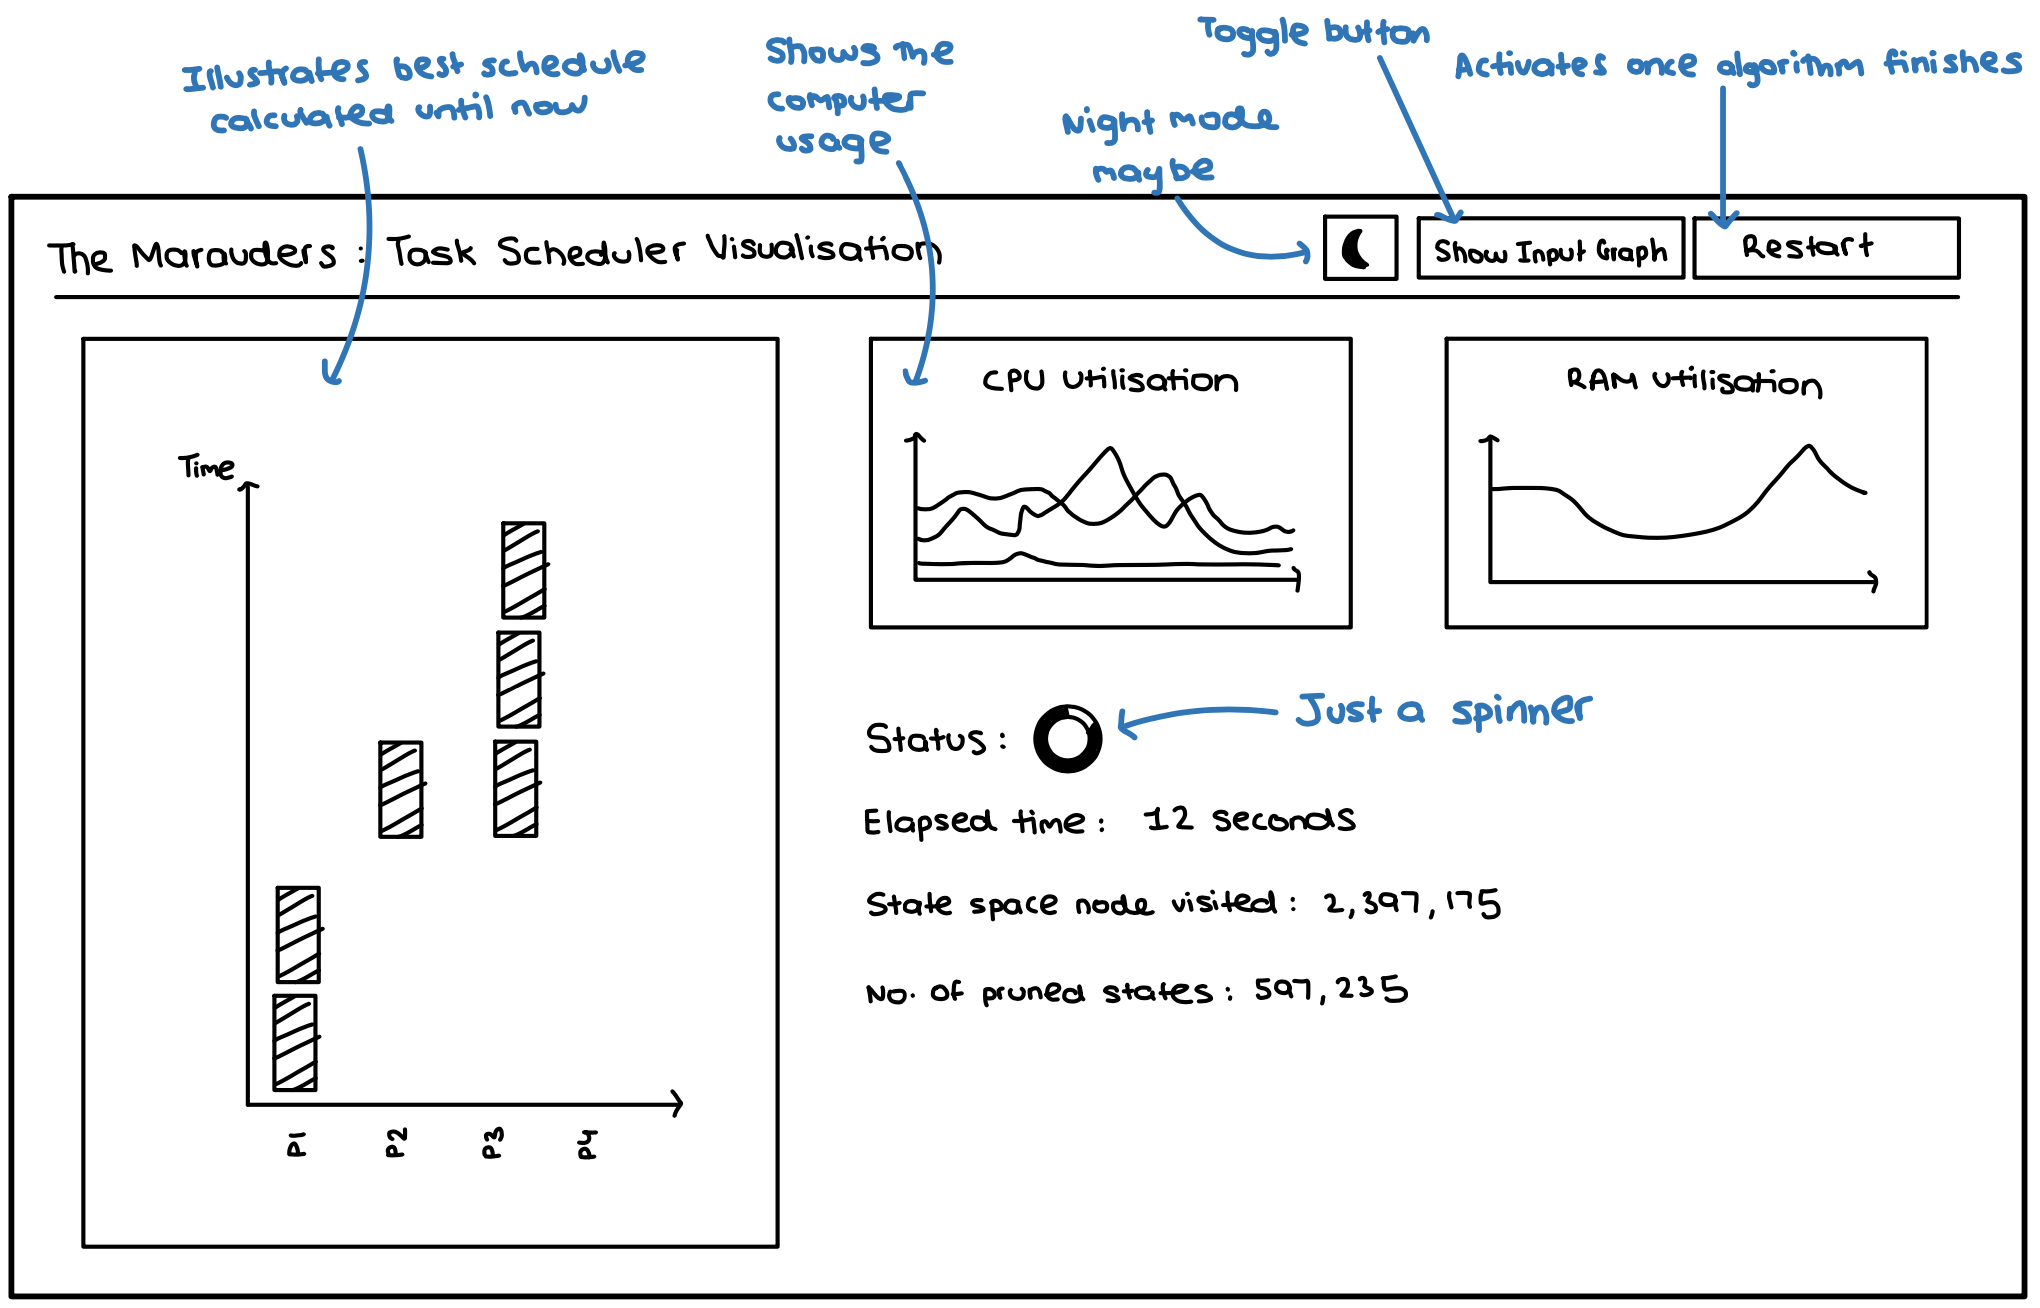 Illustrates best schedule
calculated until now
Shows the
computer
usage
Night mode
maybe
Toggle button
Activates once algorithm finishes
The Marauders : Task Scheduler Visualisation
Show Input Graph
Restart
Time
P1
P2
P3
P4
CPU Utilisation
RAM Utilisation
Status :
Just a spinner
Elapsed time : 12 seconds
State space node visited : 2,397,175
No. of pruned states : 597,235